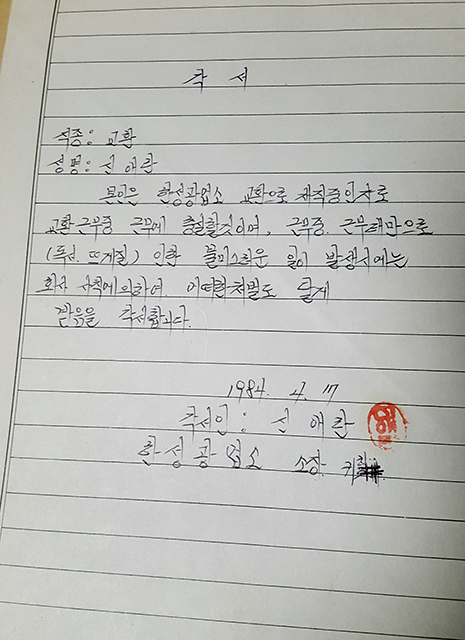 각 서
직종: 교환
성명: 신애란
본인은 한성광업소 교환으로 재직중인자로
교환근무중 근무에 충실할것이며, 근무중 근무태만으로
(독서, 뜨게질) 인한 불미스러운 일이 발생시에는
회사 사칙에의하여 어떠한처벌도 달게
받음을 각서합니다.
1984. 4. 17
각서인: 신애란
한성광업소 소장